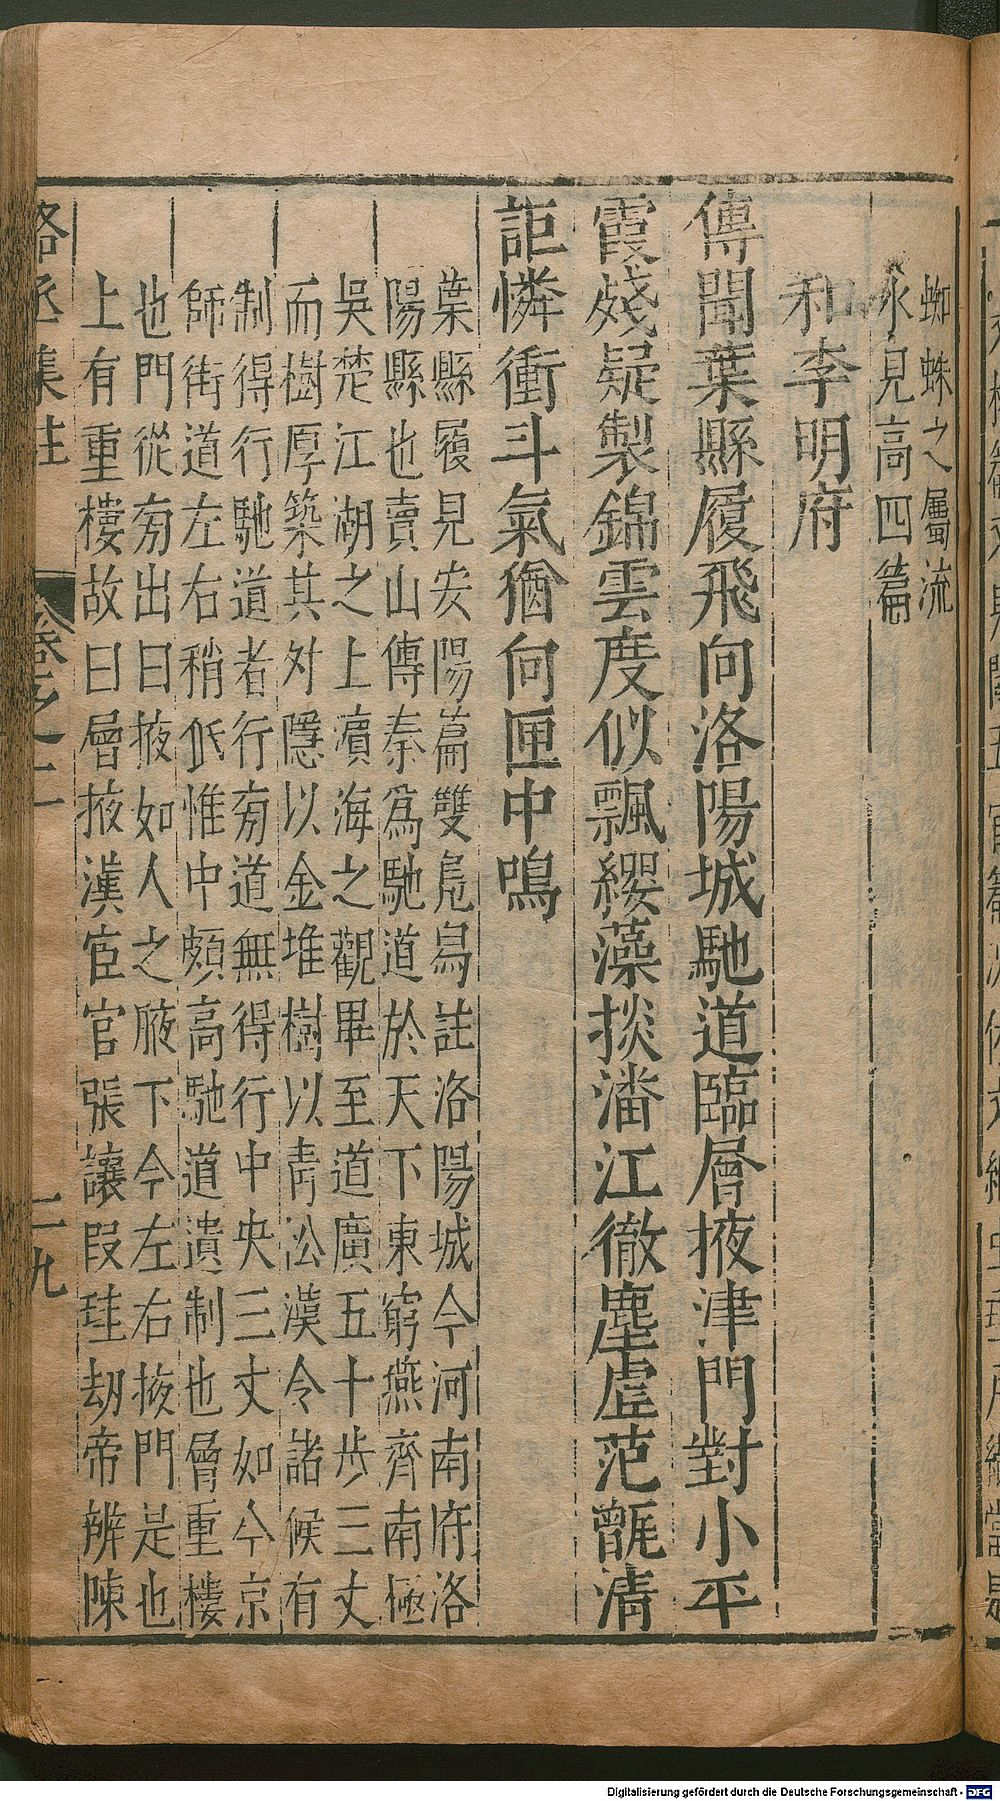 蜘蛛之屬流
永見高四篇
和李明府
傳聞葉縣履飛向洛陽城馳道臨層掖津門對小平
霞殘疑製錦雲度似飄纓藻掞潘江徹塵虛范甑清
詎憐衝斗氣猶向匣中鳴
葉縣履見安陽篇雙鳧舃註洛陽城今河南府洛
陽縣也賣山傳秦為馳道於天下東窮燕齊南極
吳楚江湖之上瀕海之觀畢至道廣五十步三丈
而樹厚築其外隱以金堆樹以青松漢令諸候有
制得行馳道者行旁道無得行中央三丈如今京
師街道左右稍低惟中頗高馳道遺制也層重樓
也門從旁出曰掖如人之腋下今左右掖門是也
上有重樓故曰層掖漢宦官張讓段珪劫帝辨陳
駱丞集註 卷之二 二九
Digitalisierung gefördert durch die Deutsche Forschungsgemeinschaft - DFG